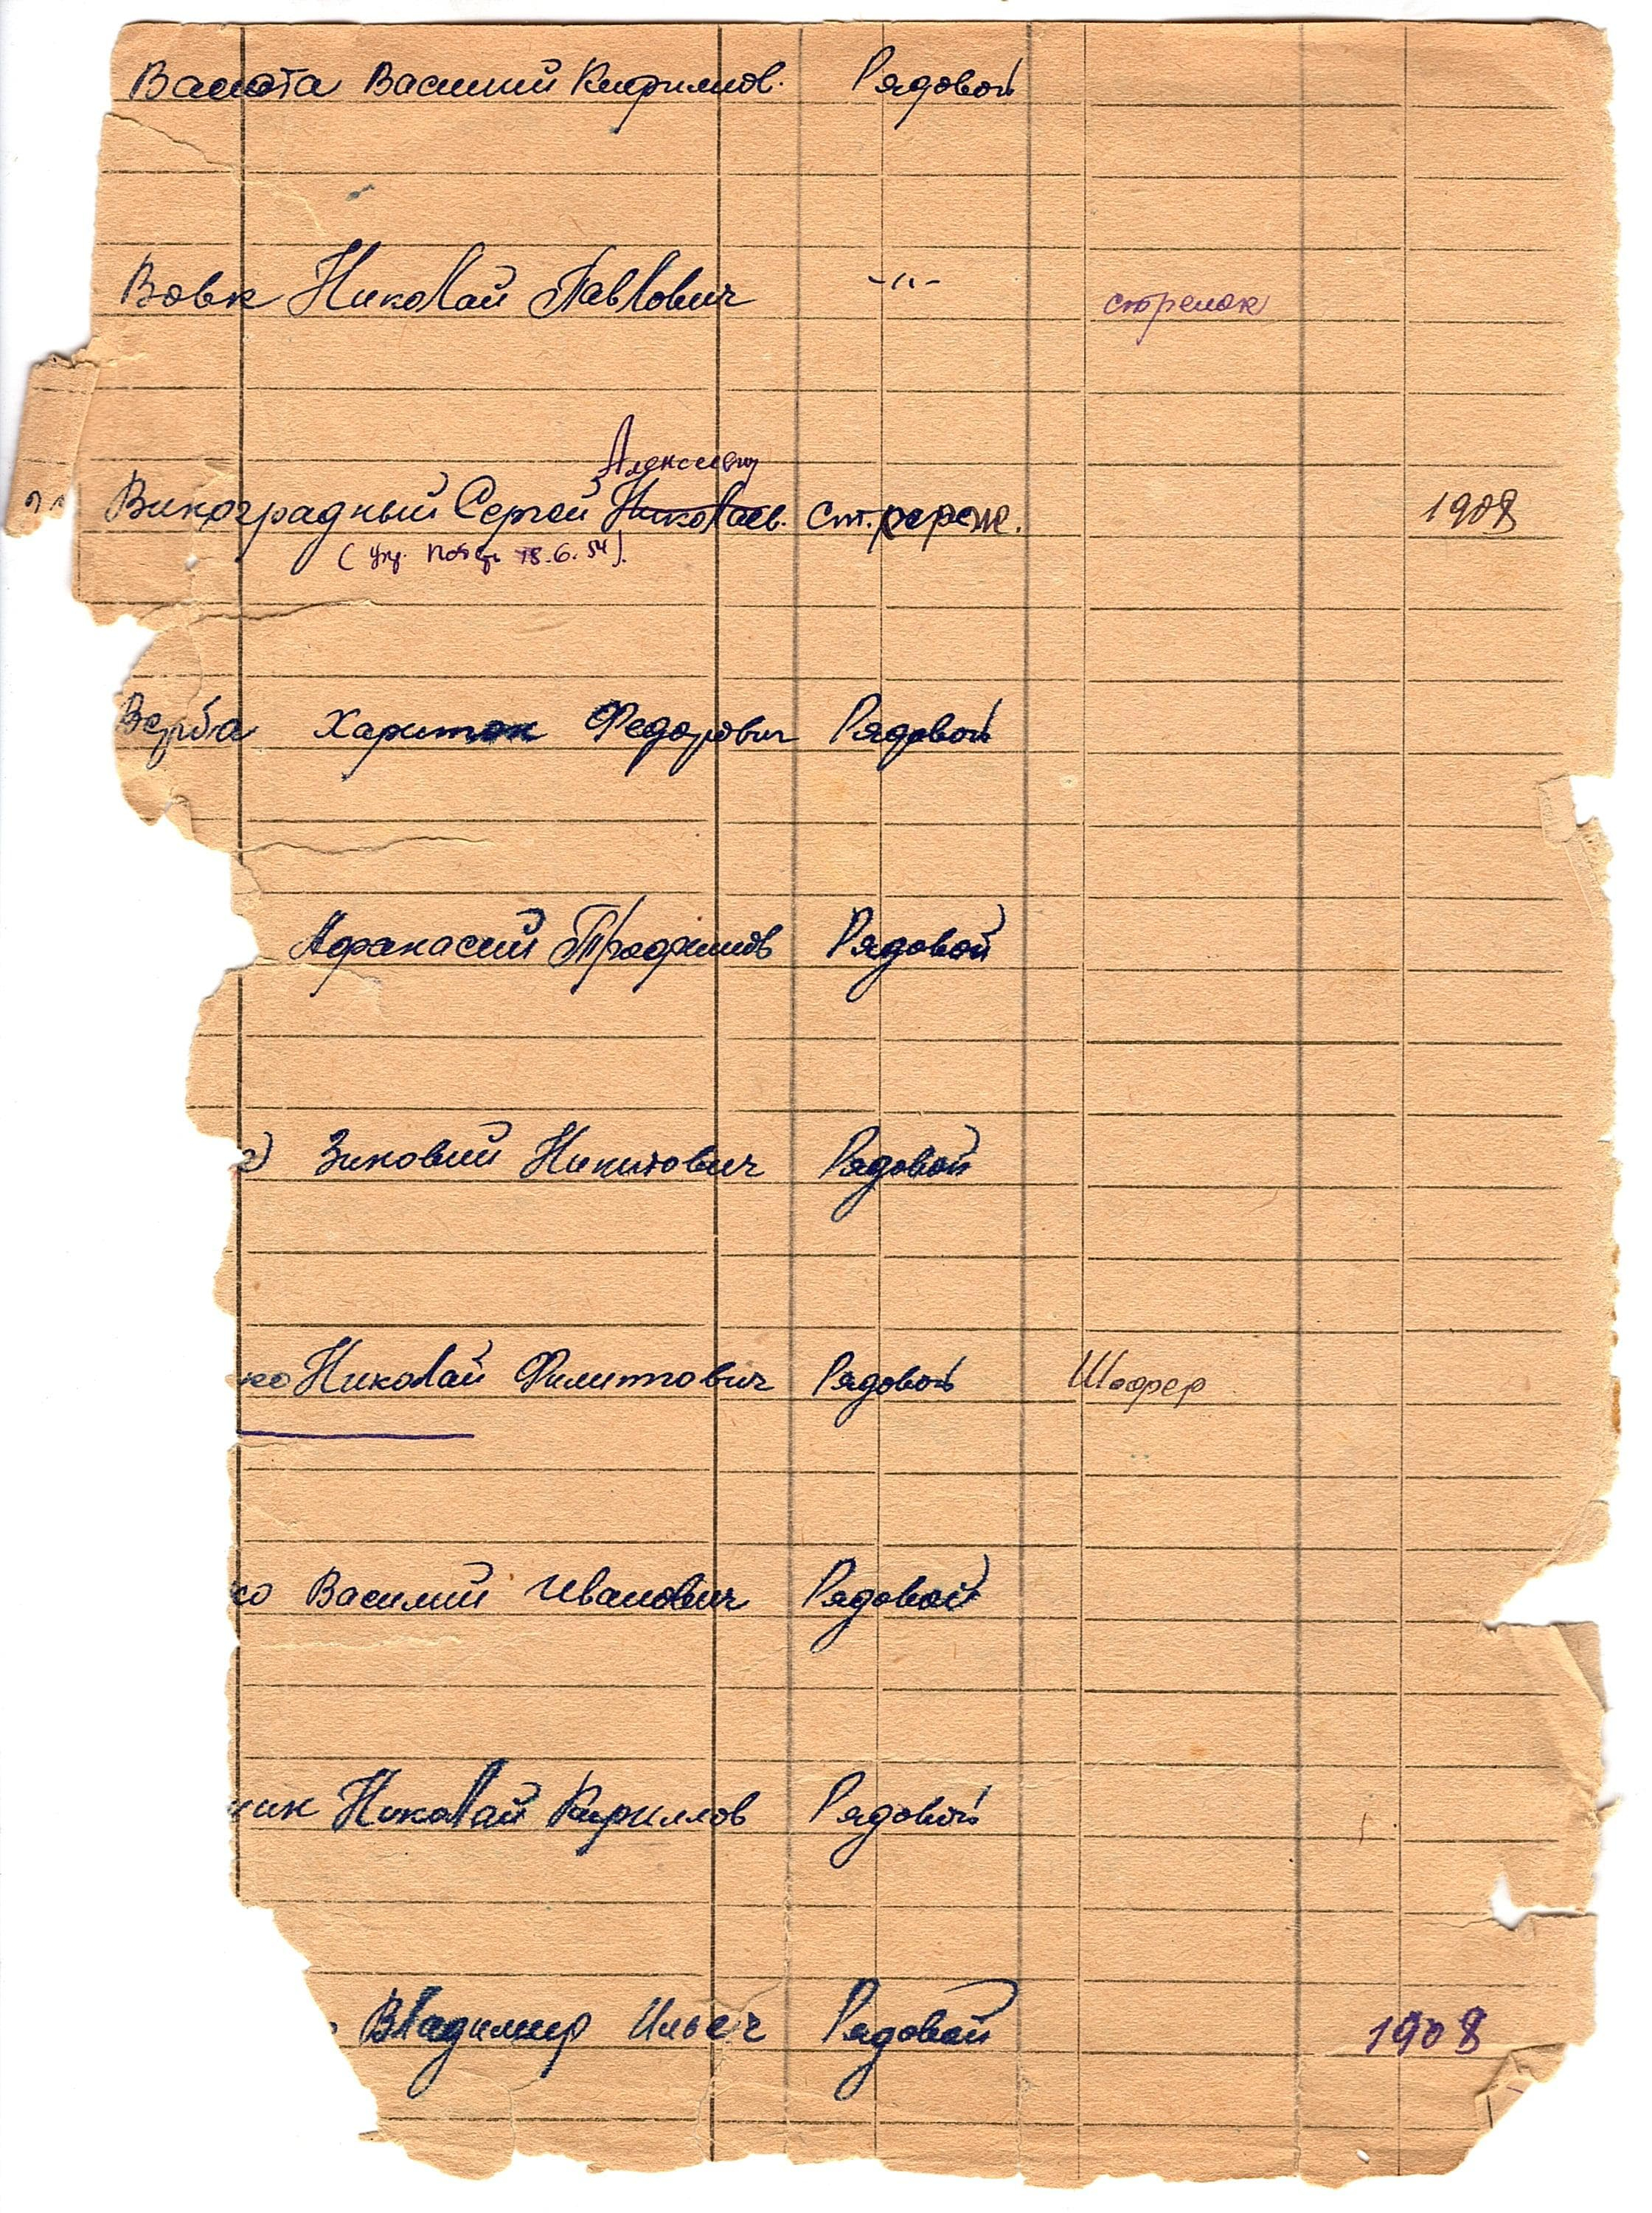 Василий Кирилов. Рядовой
Вовк Николай Павлович -"- стрелок
Алексееву
Виноградный Сергей Николаев. ст. серж. 1908
18.6.54).
Верба Харитон Федорович Рядовой
Афанасий Трофимов Рядовой
Зиновий Никитович Рядовой
ко Николай Филиппович Рядовой Шофер
ко Василий Иванович Рядовой
ник Николай Кириллов Рядовой
Владимир Ильич Рядовой 1908